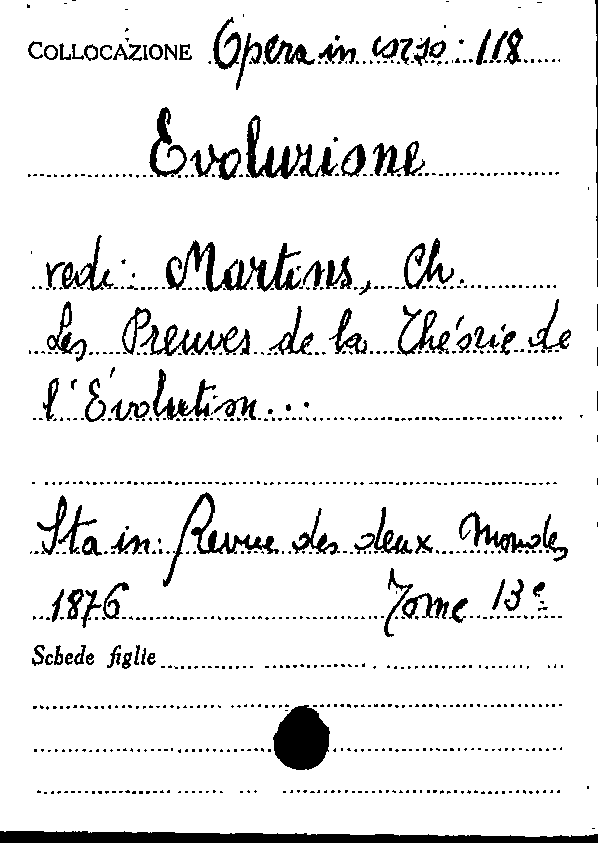 COLLOCAZIONE Opera in corso: 118
Evoluzione
vedi: Martins, Ch.
Les Preuves de la Théorie de
l'Évolution...
Sta in: Revue des deux Mondes
1876 Tome 13e
Schede figlie